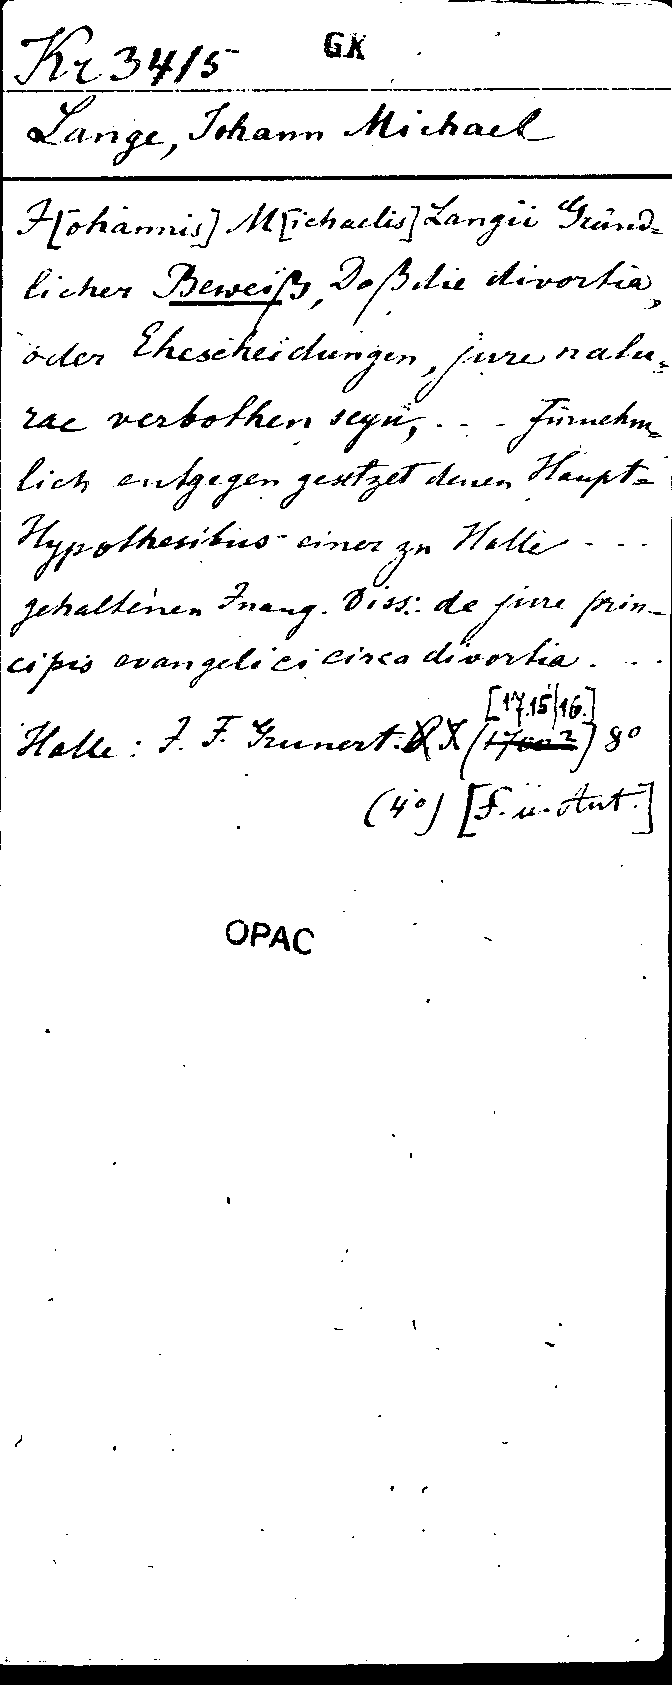 Kr 3415
GK
Lange, Johann Michael
J[ohannis] M[ichaelis] Langii Gründ-
licher Beweiß, Daß die divortia,
oder Ehescheidungen, jure natu-
rae verbothen seyn, . . . fürnehm-
lich entgegen gesetzet denen Haupt-
Hypothesibus einer zu Halle . . .
gehaltenen Inaug. Diss. de jure prin-
cipis evangelici circa divortia . . .
[1715/16.]
Halle: J. F. Grunert. (1700?) 8°
(4°) [F. u. Ant.]
OPAC